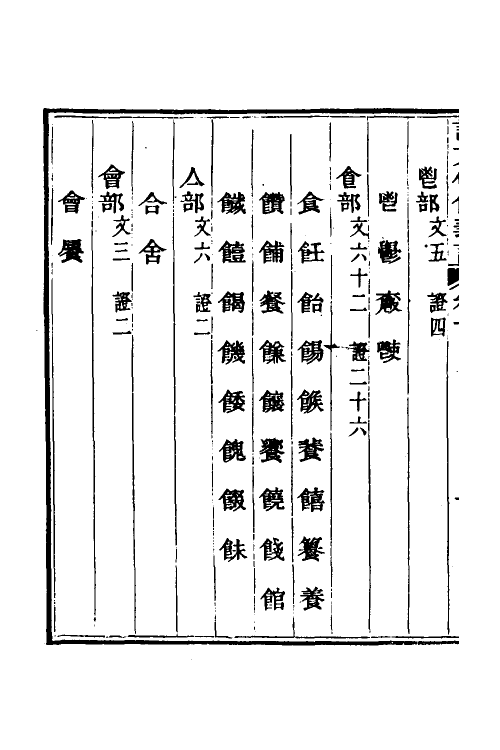 鬯部文五 證四
鬯鬱
𠊊部文六十二 證二十六
食飪飴餳餱𩜾饎籑養
饡餔餐饟饗饒餞館
饐餲饑餧餽餟餗
亼部文六 證二
合舍
會部文三 證二
會